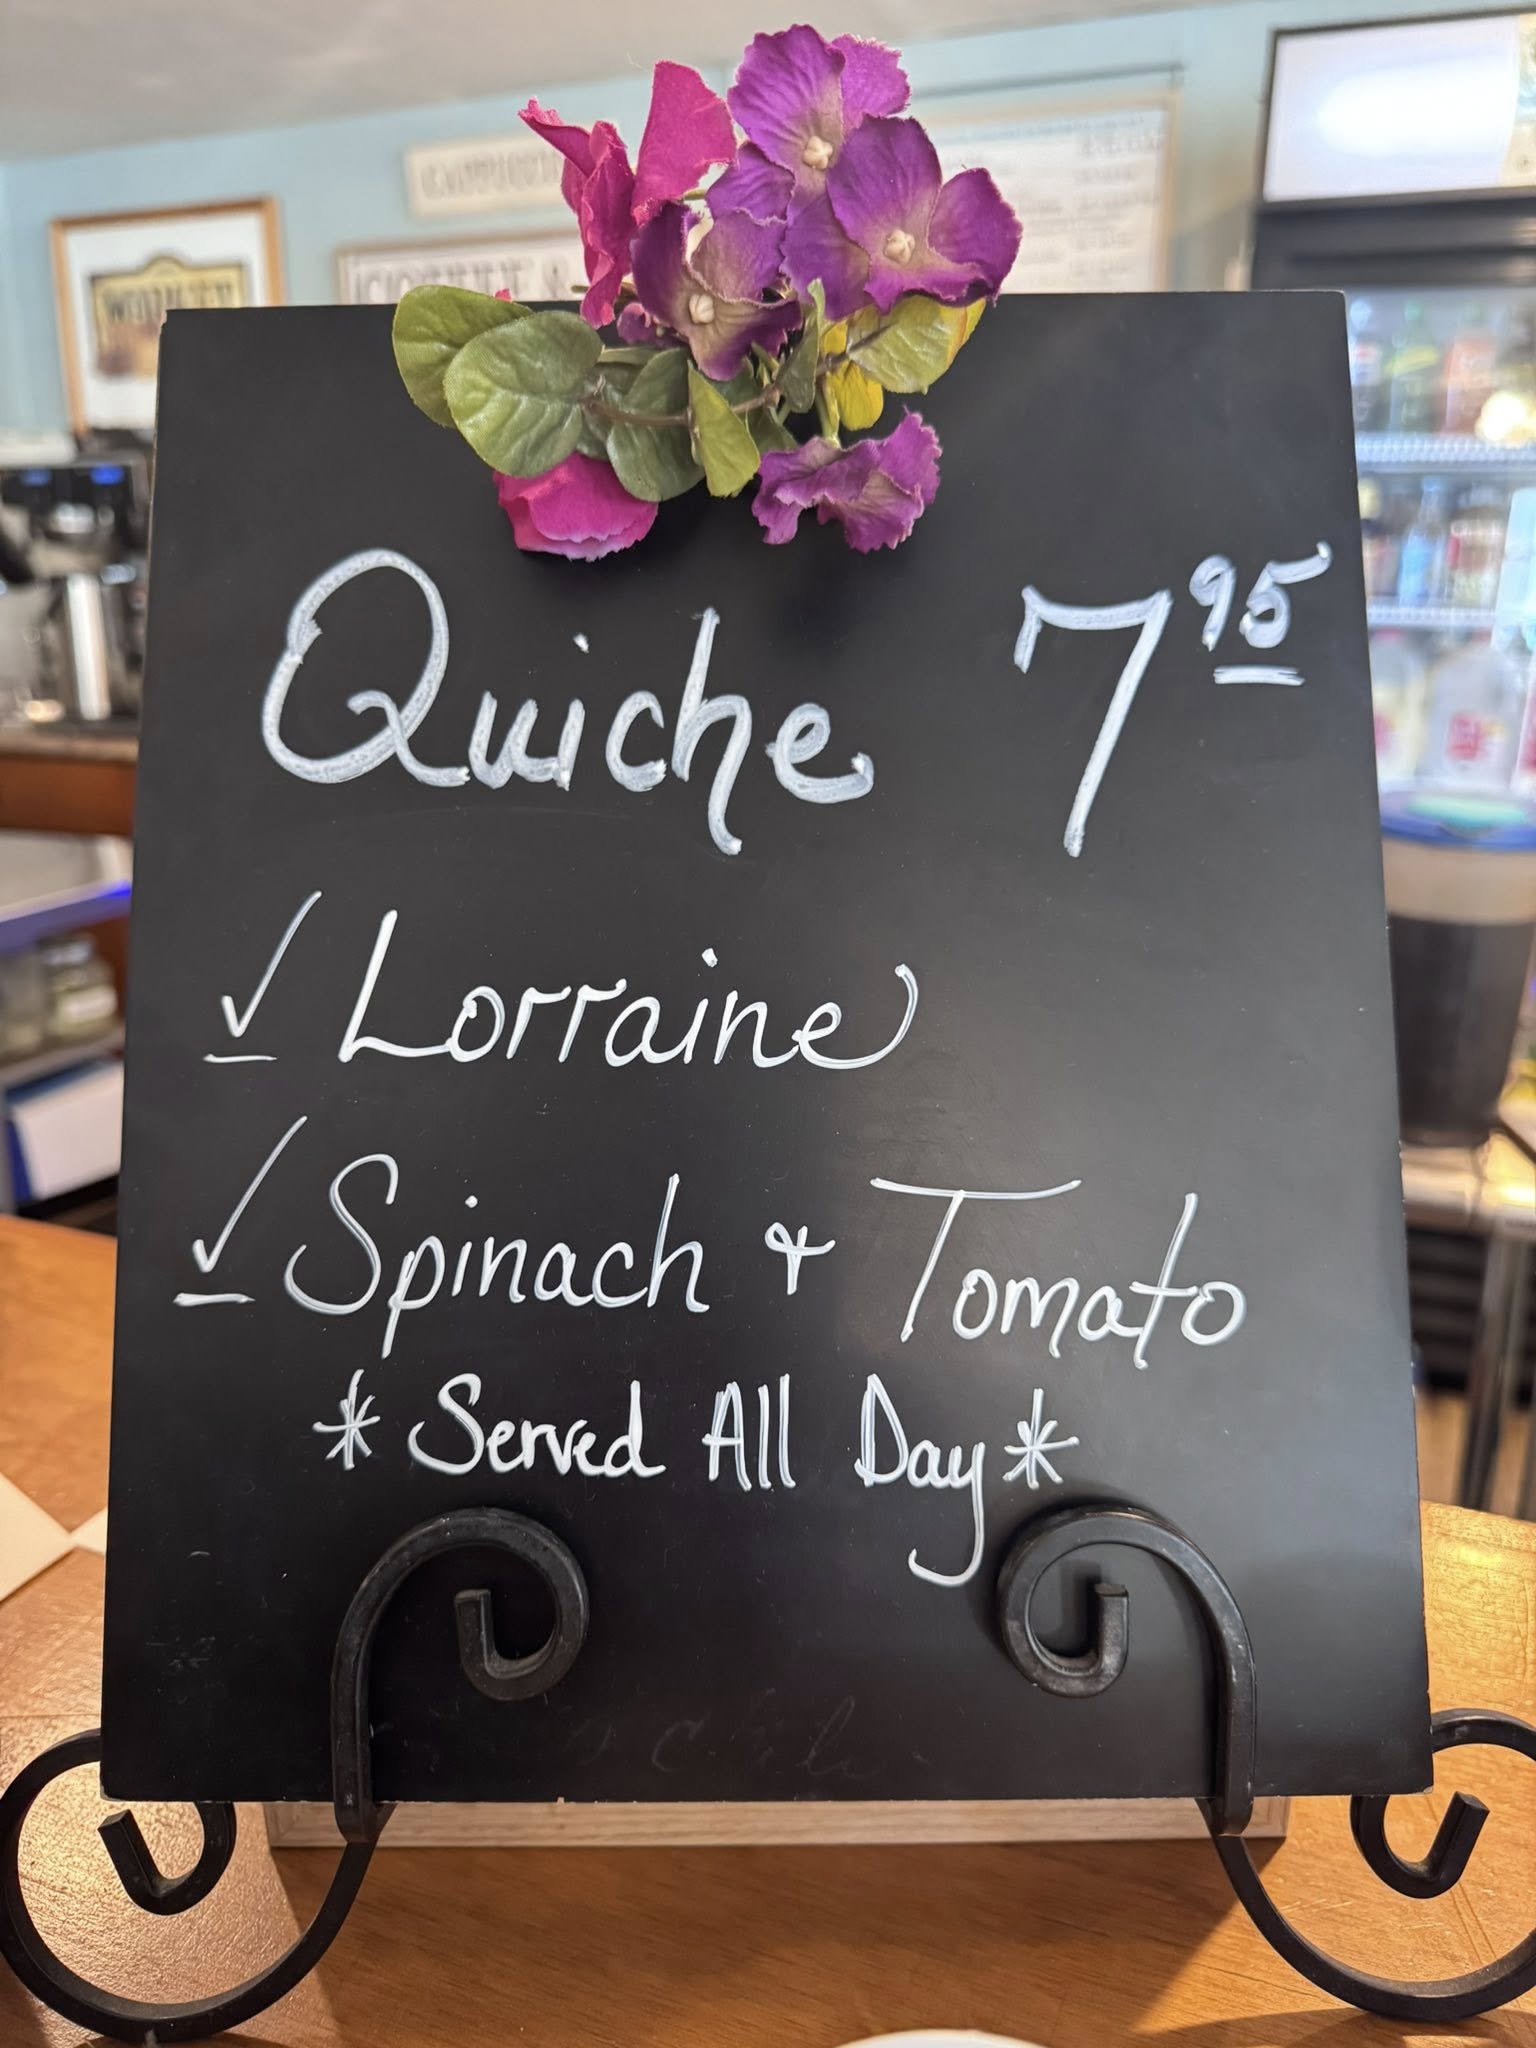 Quiche 7 95
✓ Lorraine
✓ Spinach & Tomato
* Served All Day *